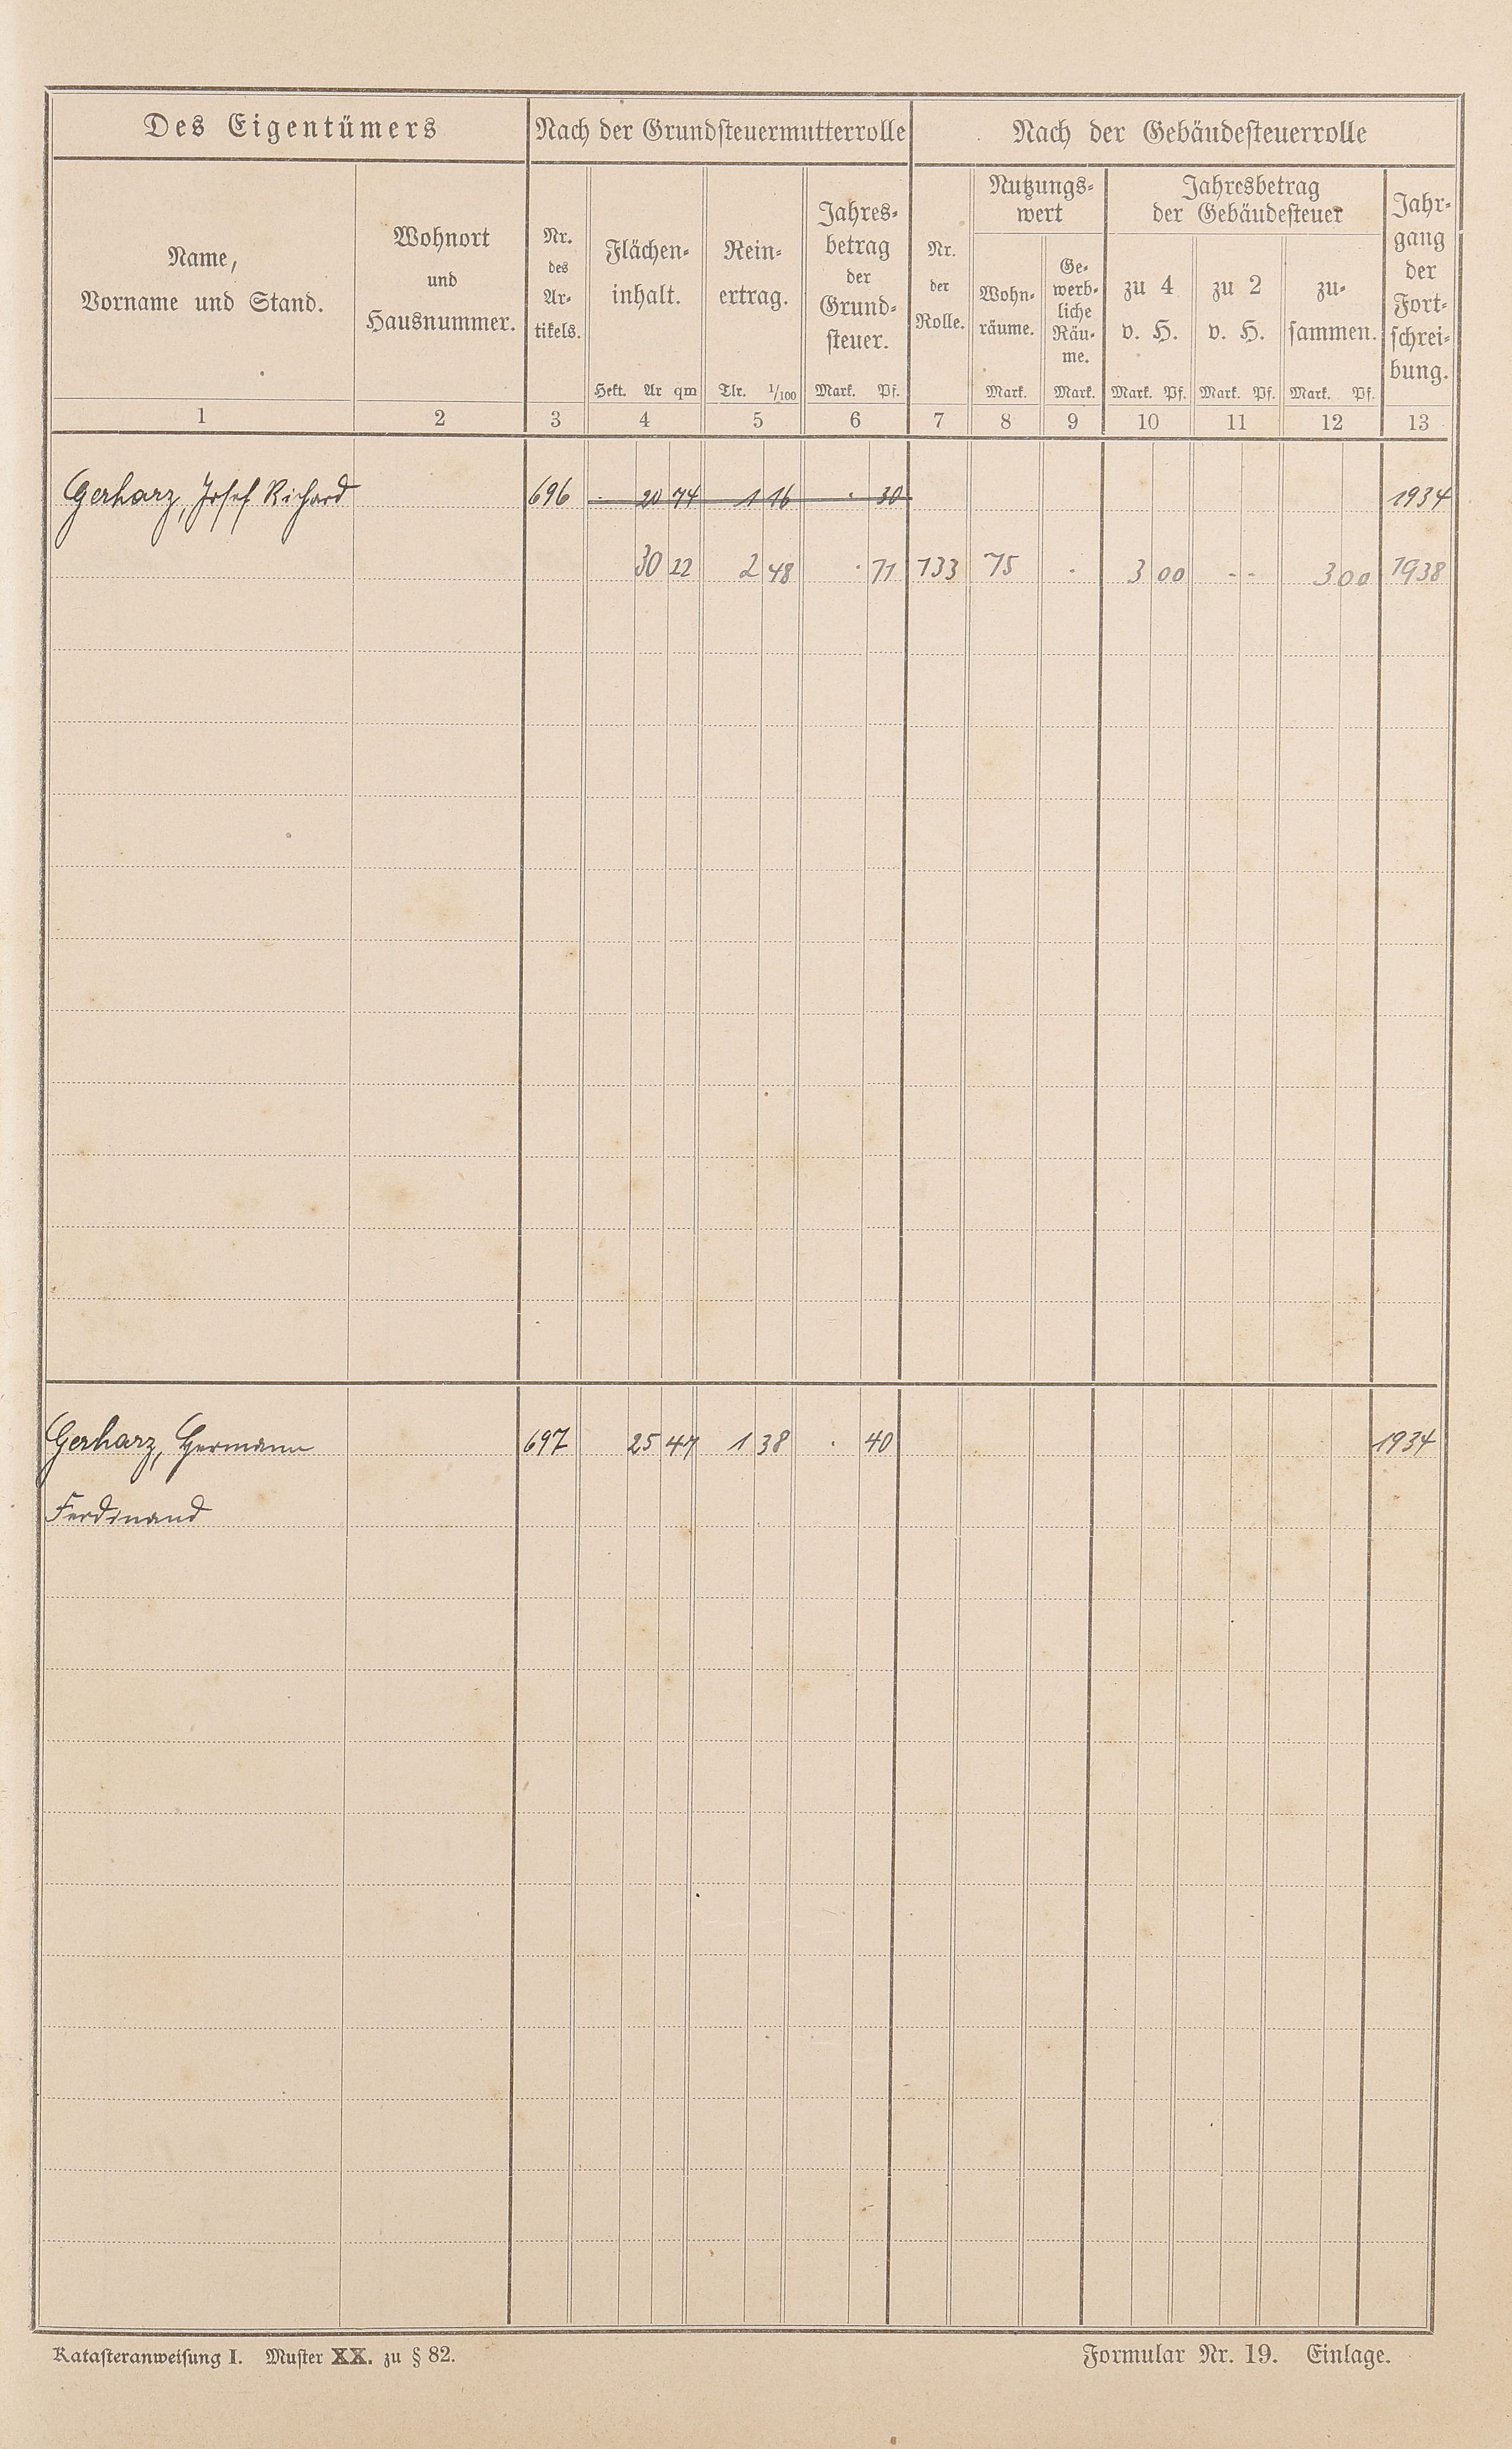 Des Eigentümers
Nach der Grundsteuermutterrolle
Nach der Gebäudesteuerrolle
Name,
Vorname und Stand.
Wohnort
und
Hausnummer.
Nr.
des
Ar-
tikels.
Flächen-
inhalt.
Hekt. Ar qm
Rein-
ertrag.
Tlr. 1/100
Jahres-
betrag
der
Grund-
steuer.
Mark. Pf.
Nr.
der
Rolle.
Nutzungs-
wert
Wohn-
räume.
Mark.
Ge-
werb-
liche
Räu-
me.
Mark.
Jahresbetrag
der Gebäudesteuer
zu 4
v. H.
Mark. Pf.
zu 2
v. H.
Mark. Pf.
zu-
sammen.
Mark. Pf.
Jahr-
gang
der
Fort-
schrei-
bung.
1 2 3 4 5 6 7 8 9 10 11 12 13
Gerharz, Josef Richard 696 - 20 74 1 16 . 30 1934
30 22 2 48 . 71 133 75 . 3 00 - - 3 00 1938
Gerharz, Hermann 697 25 47 1 38 . 40 1934
Ferdinand
Katasteranweisung I. Muster XX. zu § 82.
Formular Nr. 19. Einlage.